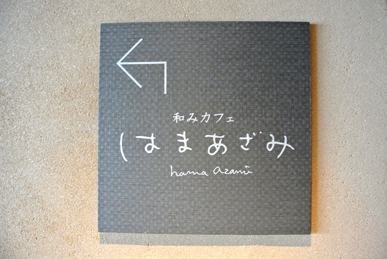 和みカフェ
はまあざみ
hama azami